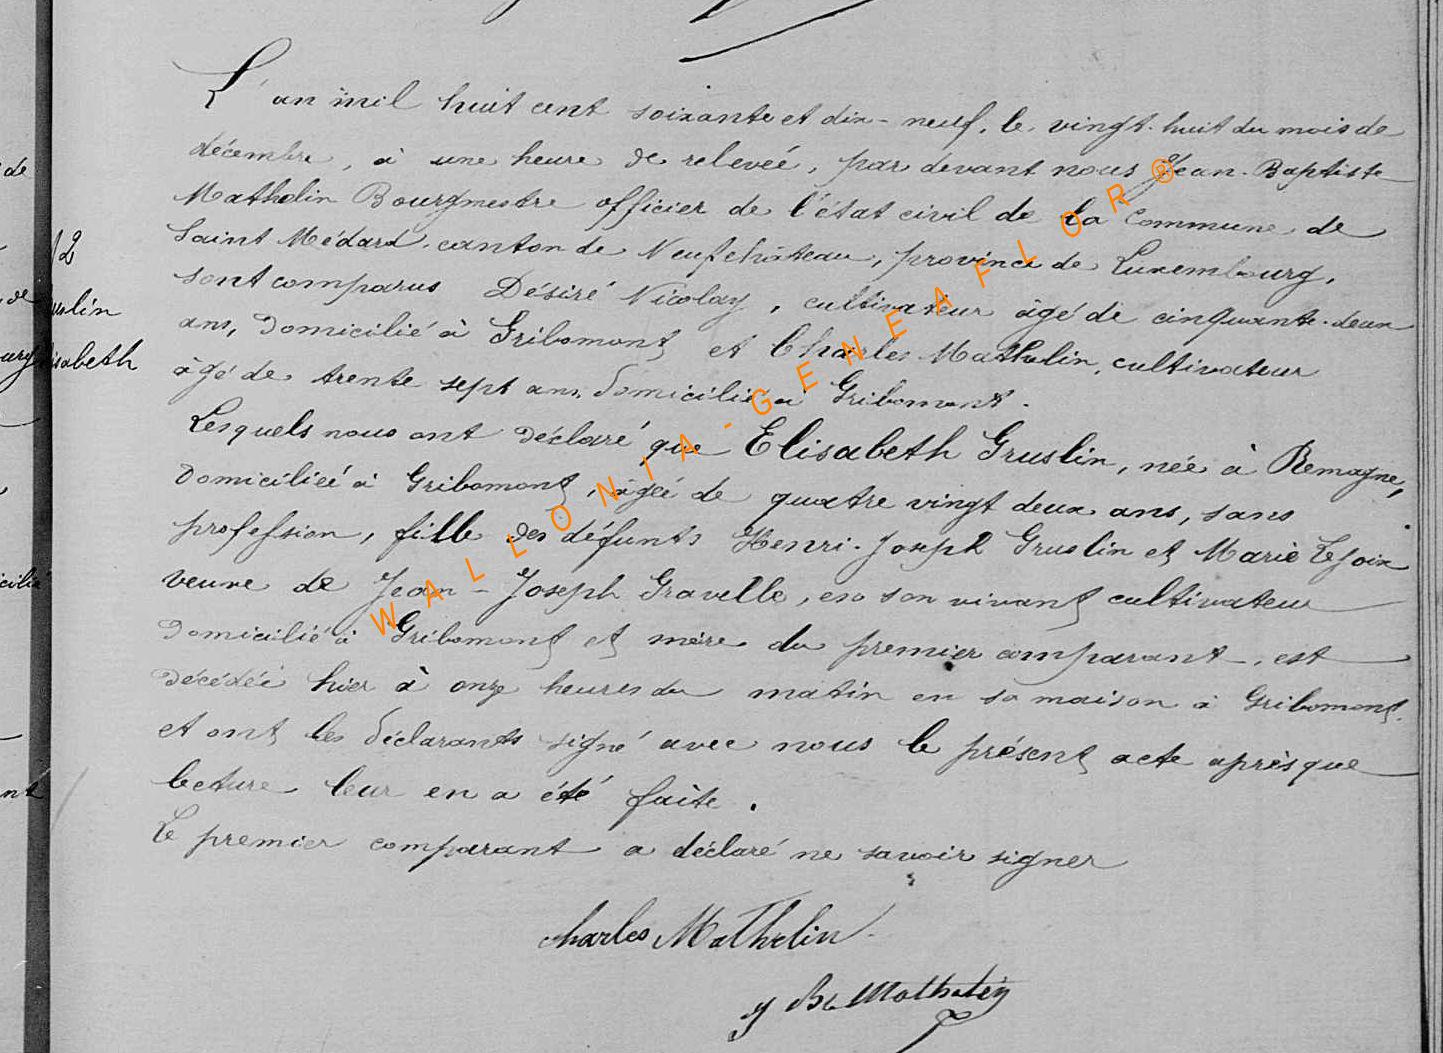 12
uslin
isabeth
L'an mil huit cent soixante et dix-neuf, le vingt-huit du mois de
décembre, à une heure de relevée, par devant nous Jean-Baptiste
Mathelin Bourgmestre officier de l'état civil de la Commune de
Saint Médard, canton de Neufchâteau, province de Luxembourg,
sont comparus Désiré Nicolay, cultivateur âgé de cinquante-deux
ans, domicilié à Gribomont et Charles Mathelin, cultivateur
âgé de trente sept ans, domicilié à Gribomont.
Lesquels nous ont déclaré que Elisabeth Gruslin, née à Remagne,
domiciliée à Gribomont, âgée de quatre vingt deux ans, sans
profession, fille des défunts Henri-Joseph Gruslin et Marie Lejoix
veuve de Jean-Joseph Gravelle, en son vivant cultivateur
domicilié à Gribomont et mère du premier comparant, est
décédée hier à onze heures du matin en sa maison à Gribomont.
et ont les déclarants signé avec nous le présent acte après que
lecture leur en a été faite.
Le premier comparant a déclaré ne savoir signer
Charles Mathelin
J Bte Mathelin
WALLONIA-GENEAFLOR®